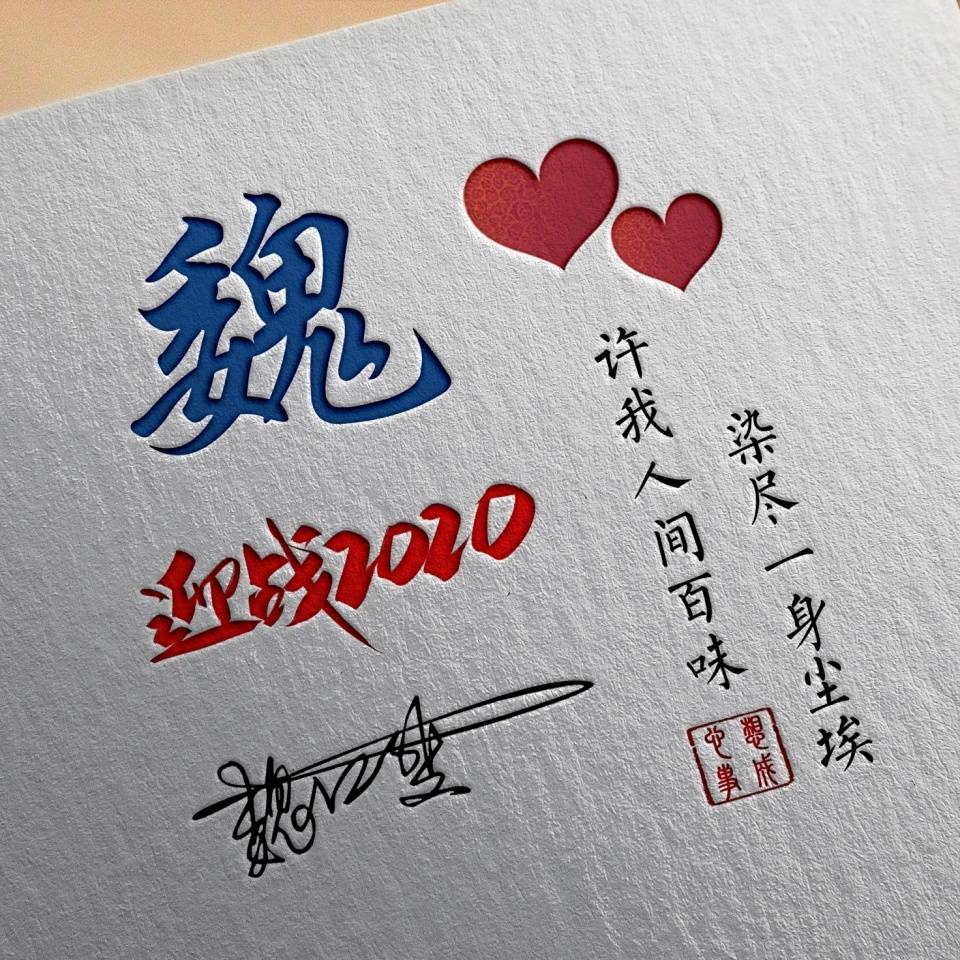 魏
迎战2020
许我人间百味
染尽一身尘埃
心想
事成
魏江